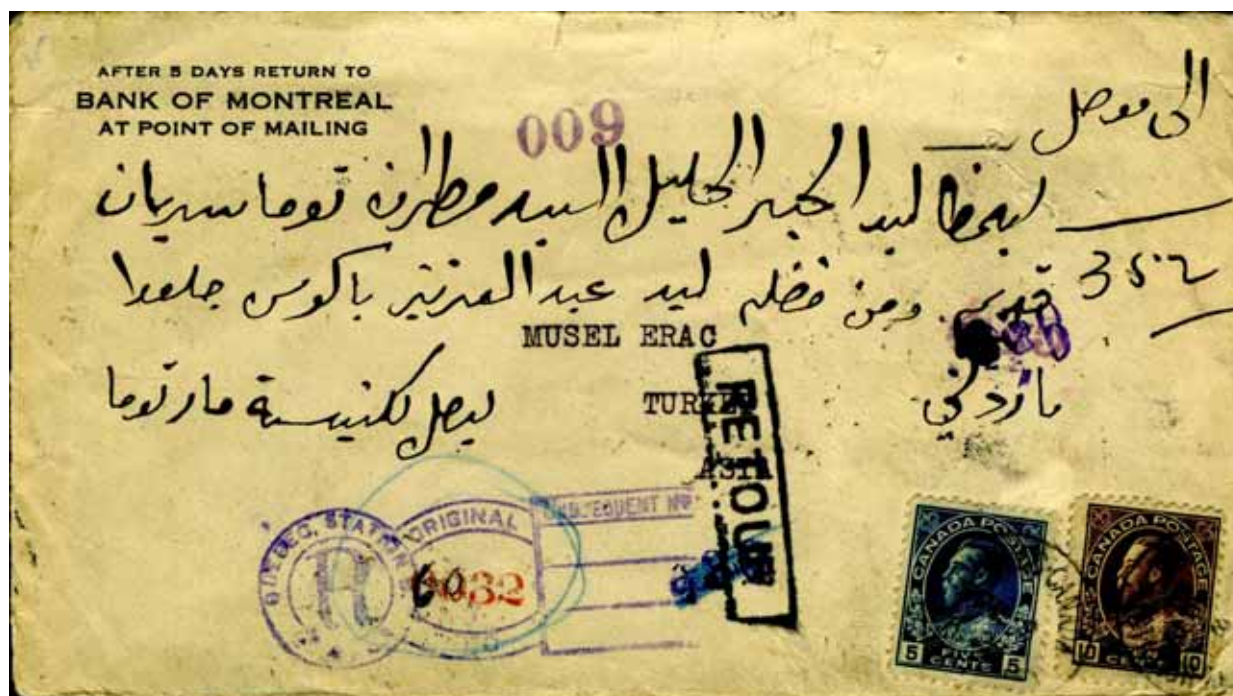 AFTER 5 DAYS RETURN TO
BANK OF MONTREAL
AT POINT OF MAILING
009
الى موصل
الحبر الجليل السيد مطران توما سريان
352
قديم ومن فضله ليد عبد العزيز باكوس
MUSEL ERAC
ليصل لكنيسة مار توما
TURKEY
ASIA
RETOUR
QUEBEC, STATION B.
R
ORIGINAL
SUBSEQUENT Nº
6032
CANADA POSTAGE
5 FIVE CENTS 5
CANADA POSTAGE
10 CENTS 10